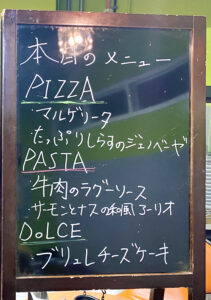 本日のメニュー
PIZZA
・マルゲリータ
・たっぷりしらすのジェノベーゼ
PASTA
・牛肉のラグーソース
・サーモンとナスの和風アーリオ
DOLCE
・ブリュレチーズケーキ